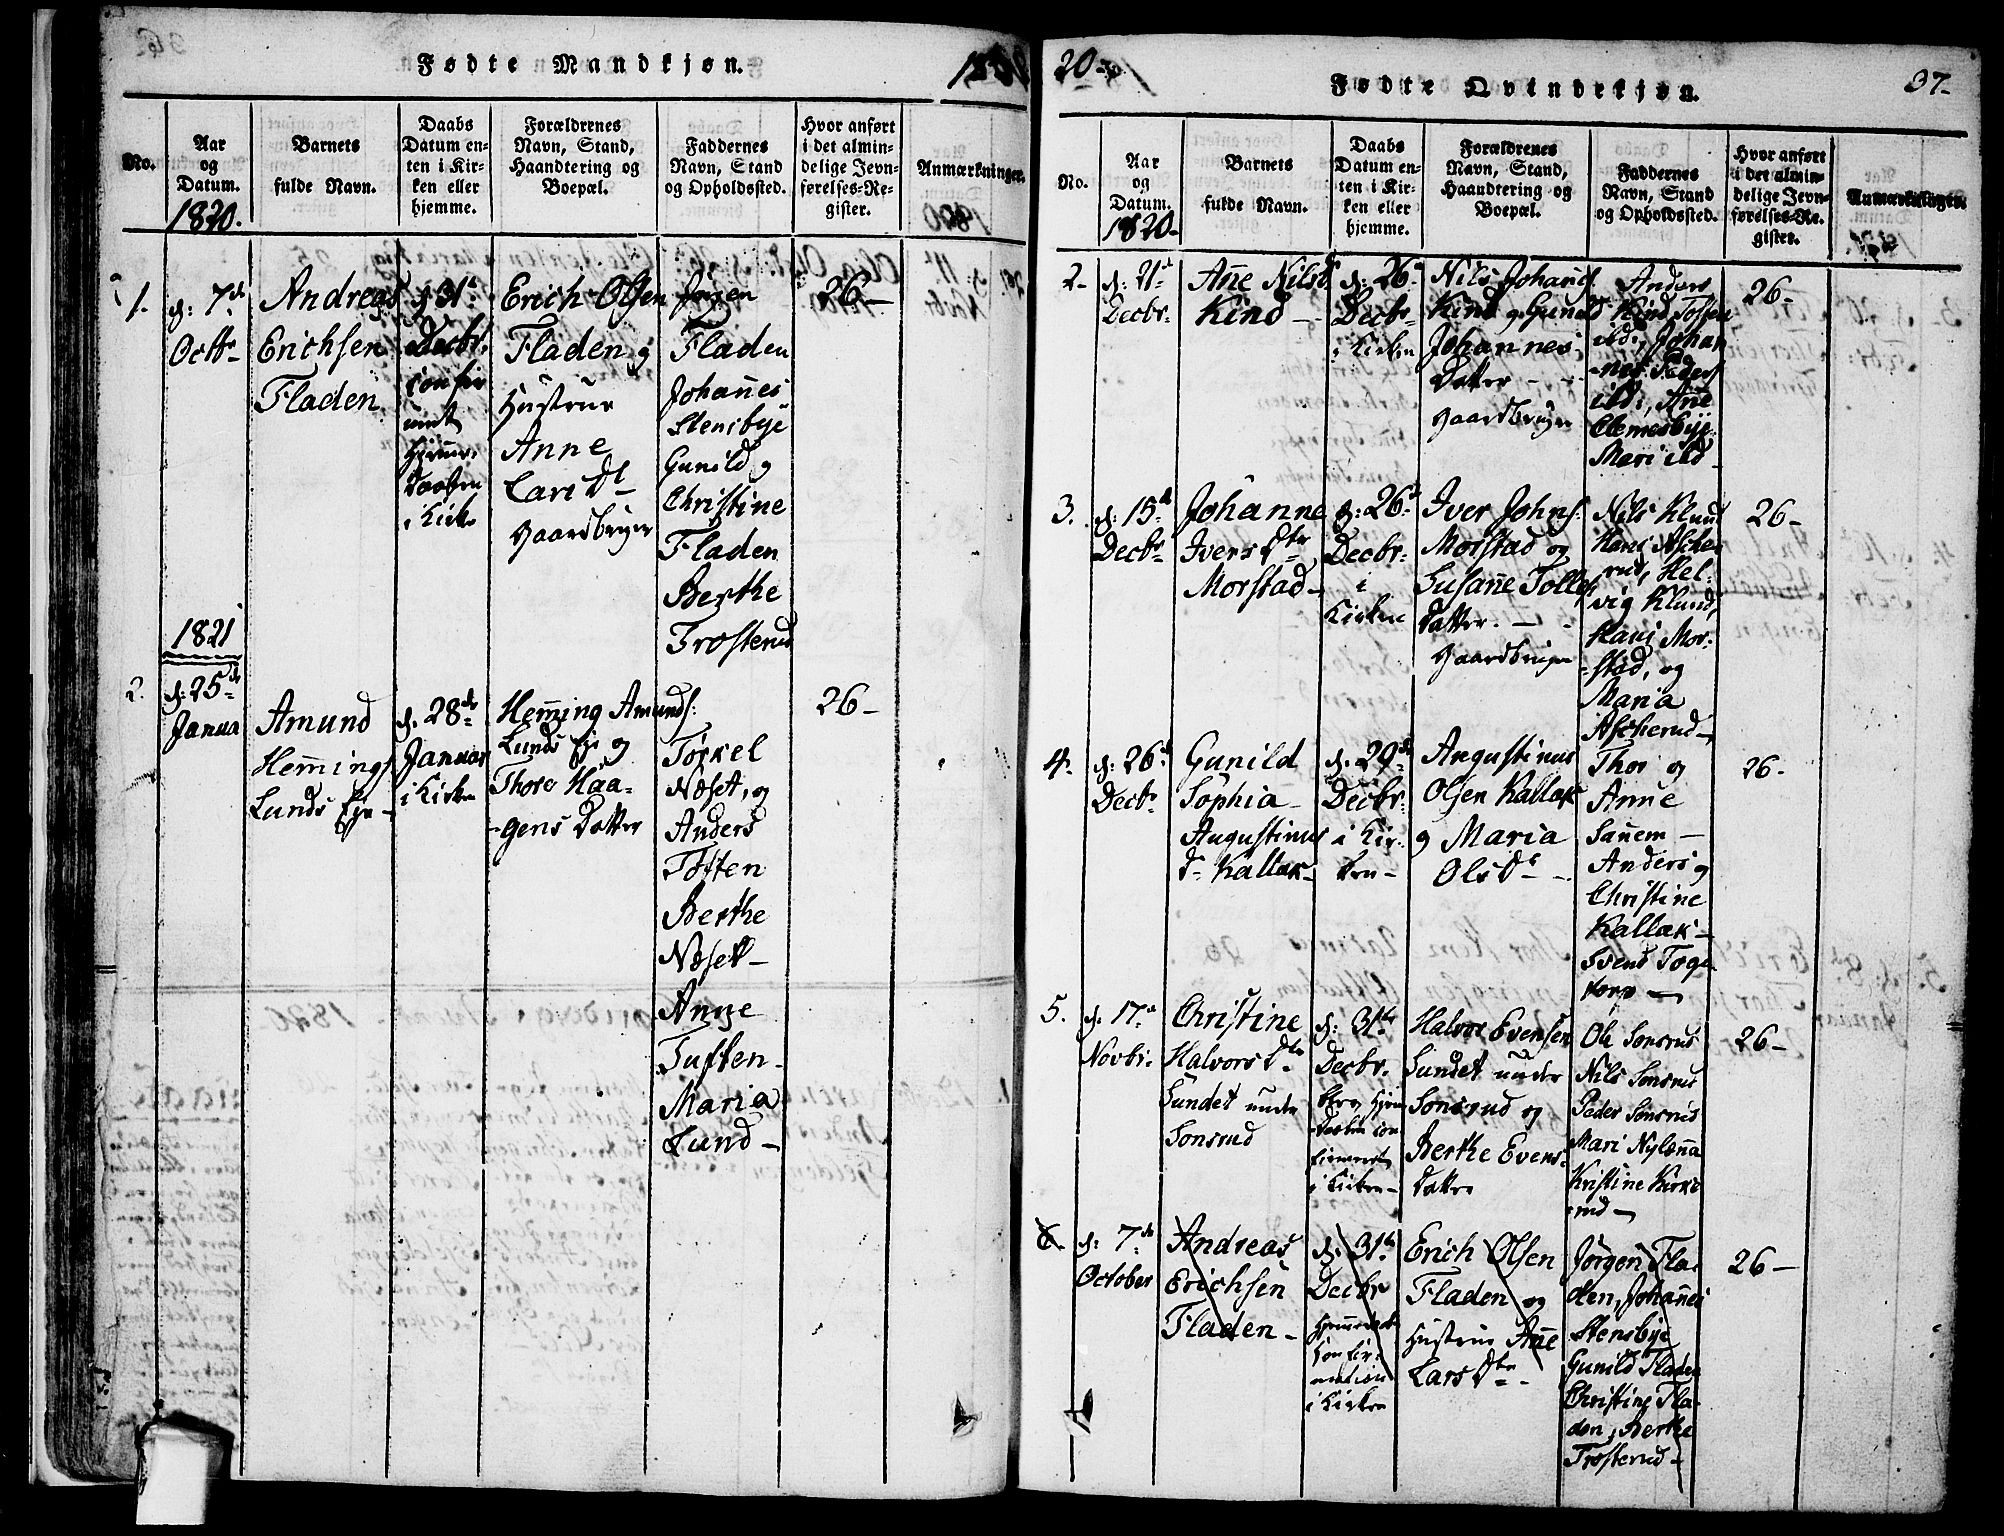 Fødte Mandkjøn.
No.
Aar
og
Datum.
1820.
Barnets
fulde Navn.
Daabs
Datum en-
ten i Kir-
ken eller
hjemme.
Forældrenes
Navn, Stand,
Haandtering og
Boepæl.
Faddernes
Navn, Stand
og Opholdssted.
Hvor anført
i det almin-
delige Jevn-
førelses-Re-
gister.
Anmærkninger.
1.
d: 7de
Octbr
Andreas
Erichsen
Fladen
d 31te
Decbr.
confir
meret
Hjemme
Daaben
i Kirke
Erich Olsen
Fladen og
Hustrue
Anne
Lars Dt
Gaardbruger
Jørgen
Fladen
Johañes
Stensbye
Gunild og
Christine
Fladen
Berthe
Trosterud
26
1821
2.
d: 25de
Janua
Amund
Hem̄ings
Lunds Eje
d. 28de
Januar
i Kirken
Hem̄ing Amunds:
Lunds Eje og
Thore Haa-
gens Datter
Torkel
Næset, og
Anders
Toften
Berthe
Næset
Anne
Tuften
Maria
Lund
26
20
Fødte Qvindekjøn.
37
No.
Aar
og
Datum.
1820
Barnets
fulde Navn.
Daabs
Datum en-
ten i Kir-
ken eller
hjemme.
Forældrenes
Navn, Stand,
Haandtering og
Boepæl.
Faddernes
Navn, Stand
og Opholdssted.
Hvor anført
i det almin-
delige Jevn-
førelses-Re-
gister.
Anmærkninger.
2
d: 21de
Decbr.
Añe Nilsd
Kind
d: 26
Decbr
i Kirken
Nils Johañs
Kind og Gunild
Johannes
Datter
Gaardbruger
Anders
Kind
ibd, Johan
nes Peders
ibd, Añe
Clemesbye
Mari ibd
26
3.
d. 15de
Decbr
Johanne
Ivers Dtr
Morstad
d: 26de
Decbr:
i
Kirken
Iver Johns:
Morstad og
Susañe Tolles
Datter.
Gaardbruger
Nils Klund
Hans Ascke
rud, Hel-
vig Klund,
Hans Mor-
stad, og
Maria
Ascherud
26
4.
d. 26de
Decbr
Gunild
Sophia
Augustinus
D Kallak
d. 29de
Decbr:
i Kir-
ken
Augustinus
Olsen Kallak
og Maria
Ols Dr
Thor og
Anne
Sañem
Anders og
Christine
Kallak
Svend Toge
torp
26
5.
d. 17de
Novbr.
Christine
Halvors Dtr
Sundet under
Sonsrud
d: 31te
Decbr.
Hjem
Daaben con
firmeret
i Kirken
Halvor Evensen
Sundet under
Sonsrud og
Berthe Evens
Datter
Ole Sonsrud
Nils Sonsrud
Peder Sonsrud
Mari Nylæña
Kristine Kirke
rud
26
6.
d: 7de
October
Andreas
Erichsen
Fladen
d. 31te
Decbr
Hjemmedaabs
Confir-
mation
i Kirken
Erich Olsen
Fladen og
Hustrue Añe
Lars Dtr
Jørgen Fla-
den, Johañes
Stensbye
Gunild Fladen
Christine Fla-
den, Berthe
Trosterud
26